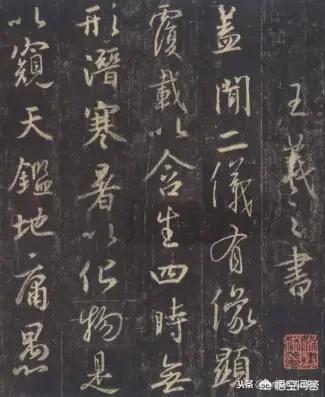 王羲之書
盖聞二儀有像顯
覆載以含生四時無
形潛寒暑以化物是
以窺天鑑地庸愚
头条@悟空问答